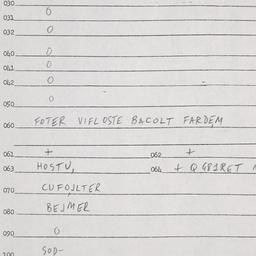 030
031 0
032 0
040 0
041 0
042 0
050 0
060 FOTER VIFLOSTE BACOLT FARDEM
061 + 062 +
063 HOSTU, 064 + Q G81RET
070 CUFOJLTER
080 BEJMER
090 0
100 SOD-